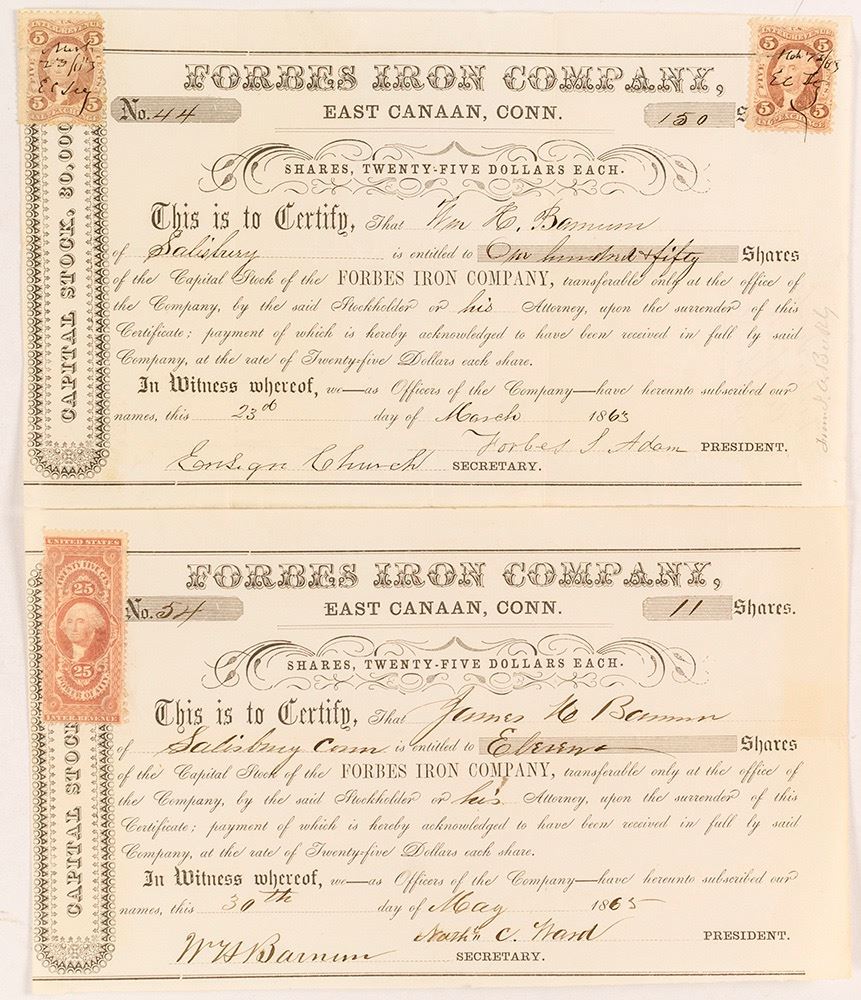 U.S. INTER. REVENUE
5 5
Mar
23/63
E C
5 5
INT. EXCHANGE
U.S. INTER. REVENUE
5 5
E C
5 5
INT. EXCHANGE
FORBES IRON COMPANY,
No. 44 EAST CANAAN, CONN. 150 S
CAPITAL STOCK, 30,000
SHARES, TWENTY-FIVE DOLLARS EACH.
This is to Certify, That Wm H. Barnum
of Salisbury is entitled to One hundred & fifty Shares
of the Capital Stock of the FORBES IRON COMPANY, transferable only at the office of
the Company, by the said Stockholder or his Attorney, upon the surrender of this
Certificate; payment of which is hereby acknowledged to have been received in full by said
Company, at the rate of Twenty-five Dollars each share.
In Witness whereof, we—as Officers of the Company—have hereunto subscribed our
names, this 23d day of March 1863
Forbes S Adam PRESIDENT.
Ensign Church SECRETARY.
UNITED STATES
TWENTY FIVE
25
25
POWER OF
INTER. REVENUE
FORBES IRON COMPANY,
No. 54 EAST CANAAN, CONN. 11 Shares.
CAPITAL STOCK
SHARES, TWENTY-FIVE DOLLARS EACH.
This is to Certify, That James H Barnum
of Salisbury Conn is entitled to Eleven Shares
of the Capital Stock of the FORBES IRON COMPANY, transferable only at the office of
the Company, by the said Stockholder or his Attorney, upon the surrender of this
Certificate; payment of which is hereby acknowledged to have been received in full by said
Company, at the rate of Twenty-five Dollars each share.
In Witness whereof, we—as Officers of the Company—have hereunto subscribed our
names, this 30th day of May 1865
Nath'l C. Ward PRESIDENT.
W H Barnum SECRETARY.